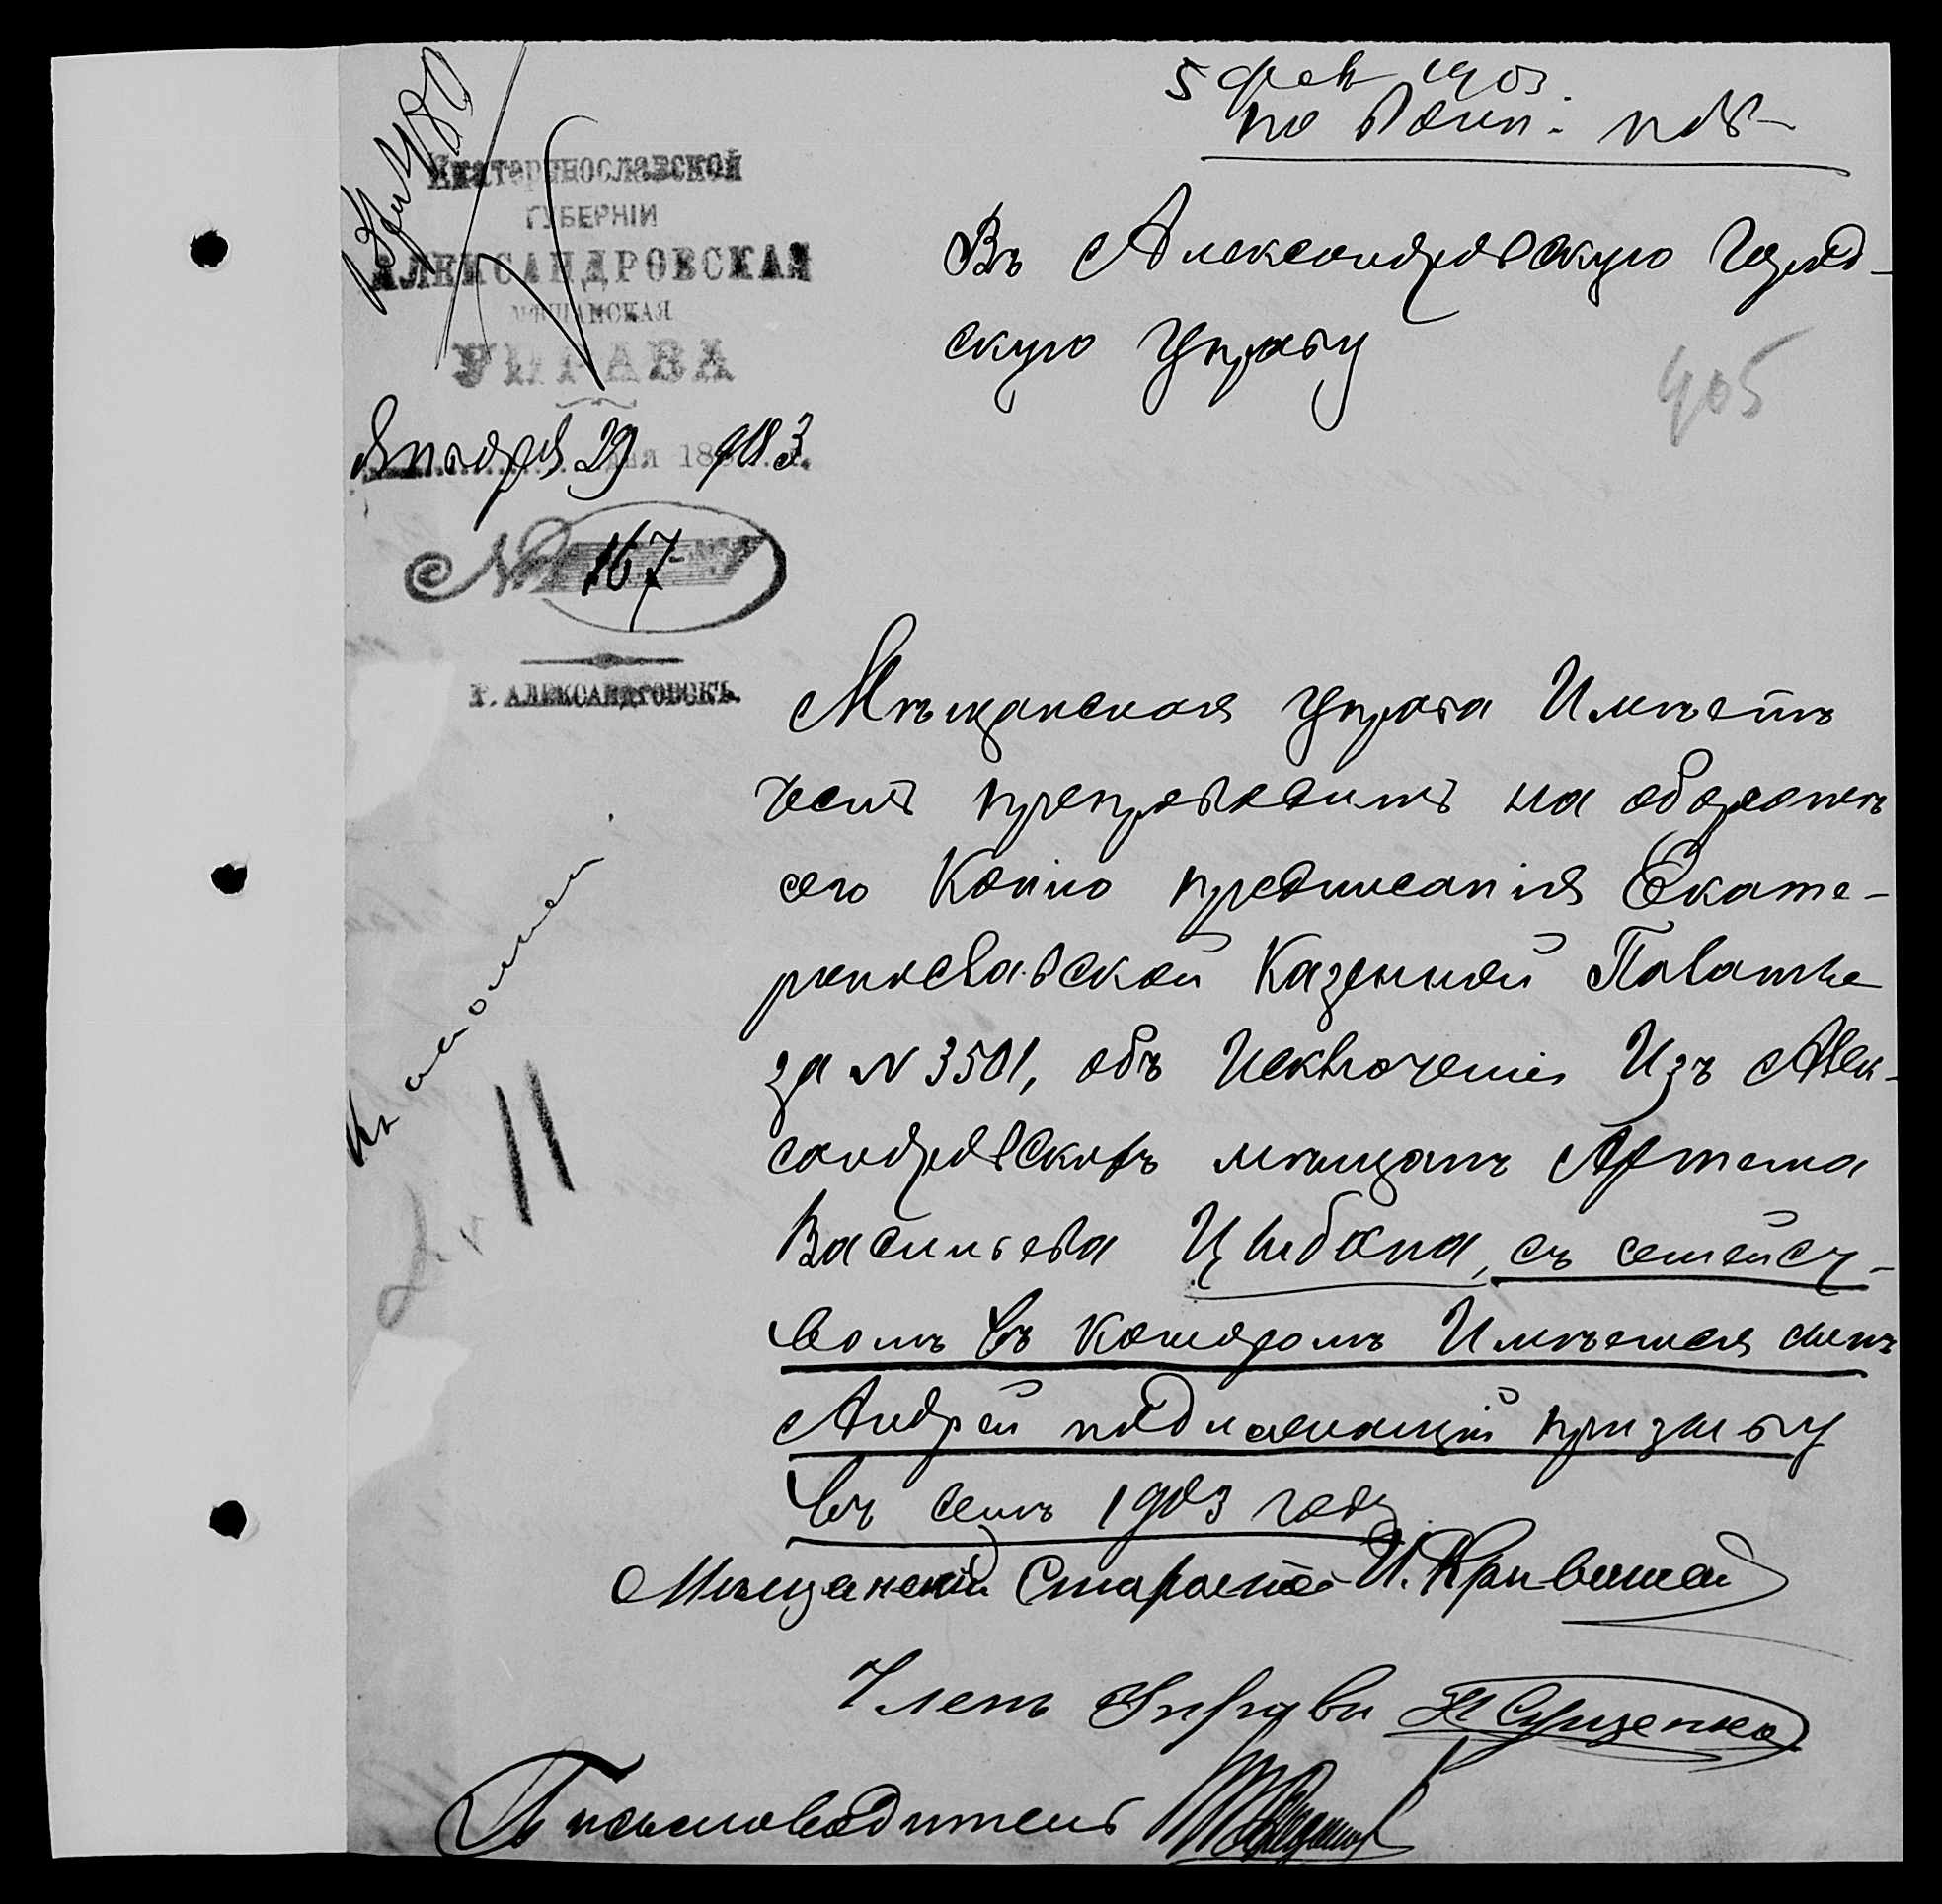 5 фев 1903
по воин: пов
Екатеринославской
ГУБЕРНІИ
АЛЕКСАНДРОВСКАЯ
МѢЩАНСКАЯ
УПРАВА
Января 29 дня 1903
№ 167
г. АЛЕКСАНДРОВСКЪ.
Въ Александровскую Город-
скую Управу
405
Мѣщанская управа Имѣетъ
честь препроводить на оборотѣ
сего Копію предписанія Екате-
ринославской Казенной Палаты
за № 3501, объ Исключеніи Изъ Алек-
сандровскихъ мѣщанъ Артема
Васильева Цыбана, съ семейст-
вомъ въ которомъ Имѣется сынъ
Андрей подлежащій призыву
въ семъ 1903 году
Мѣщанскій Староста И.
Членъ Управы Сущенко
Письмоводитель